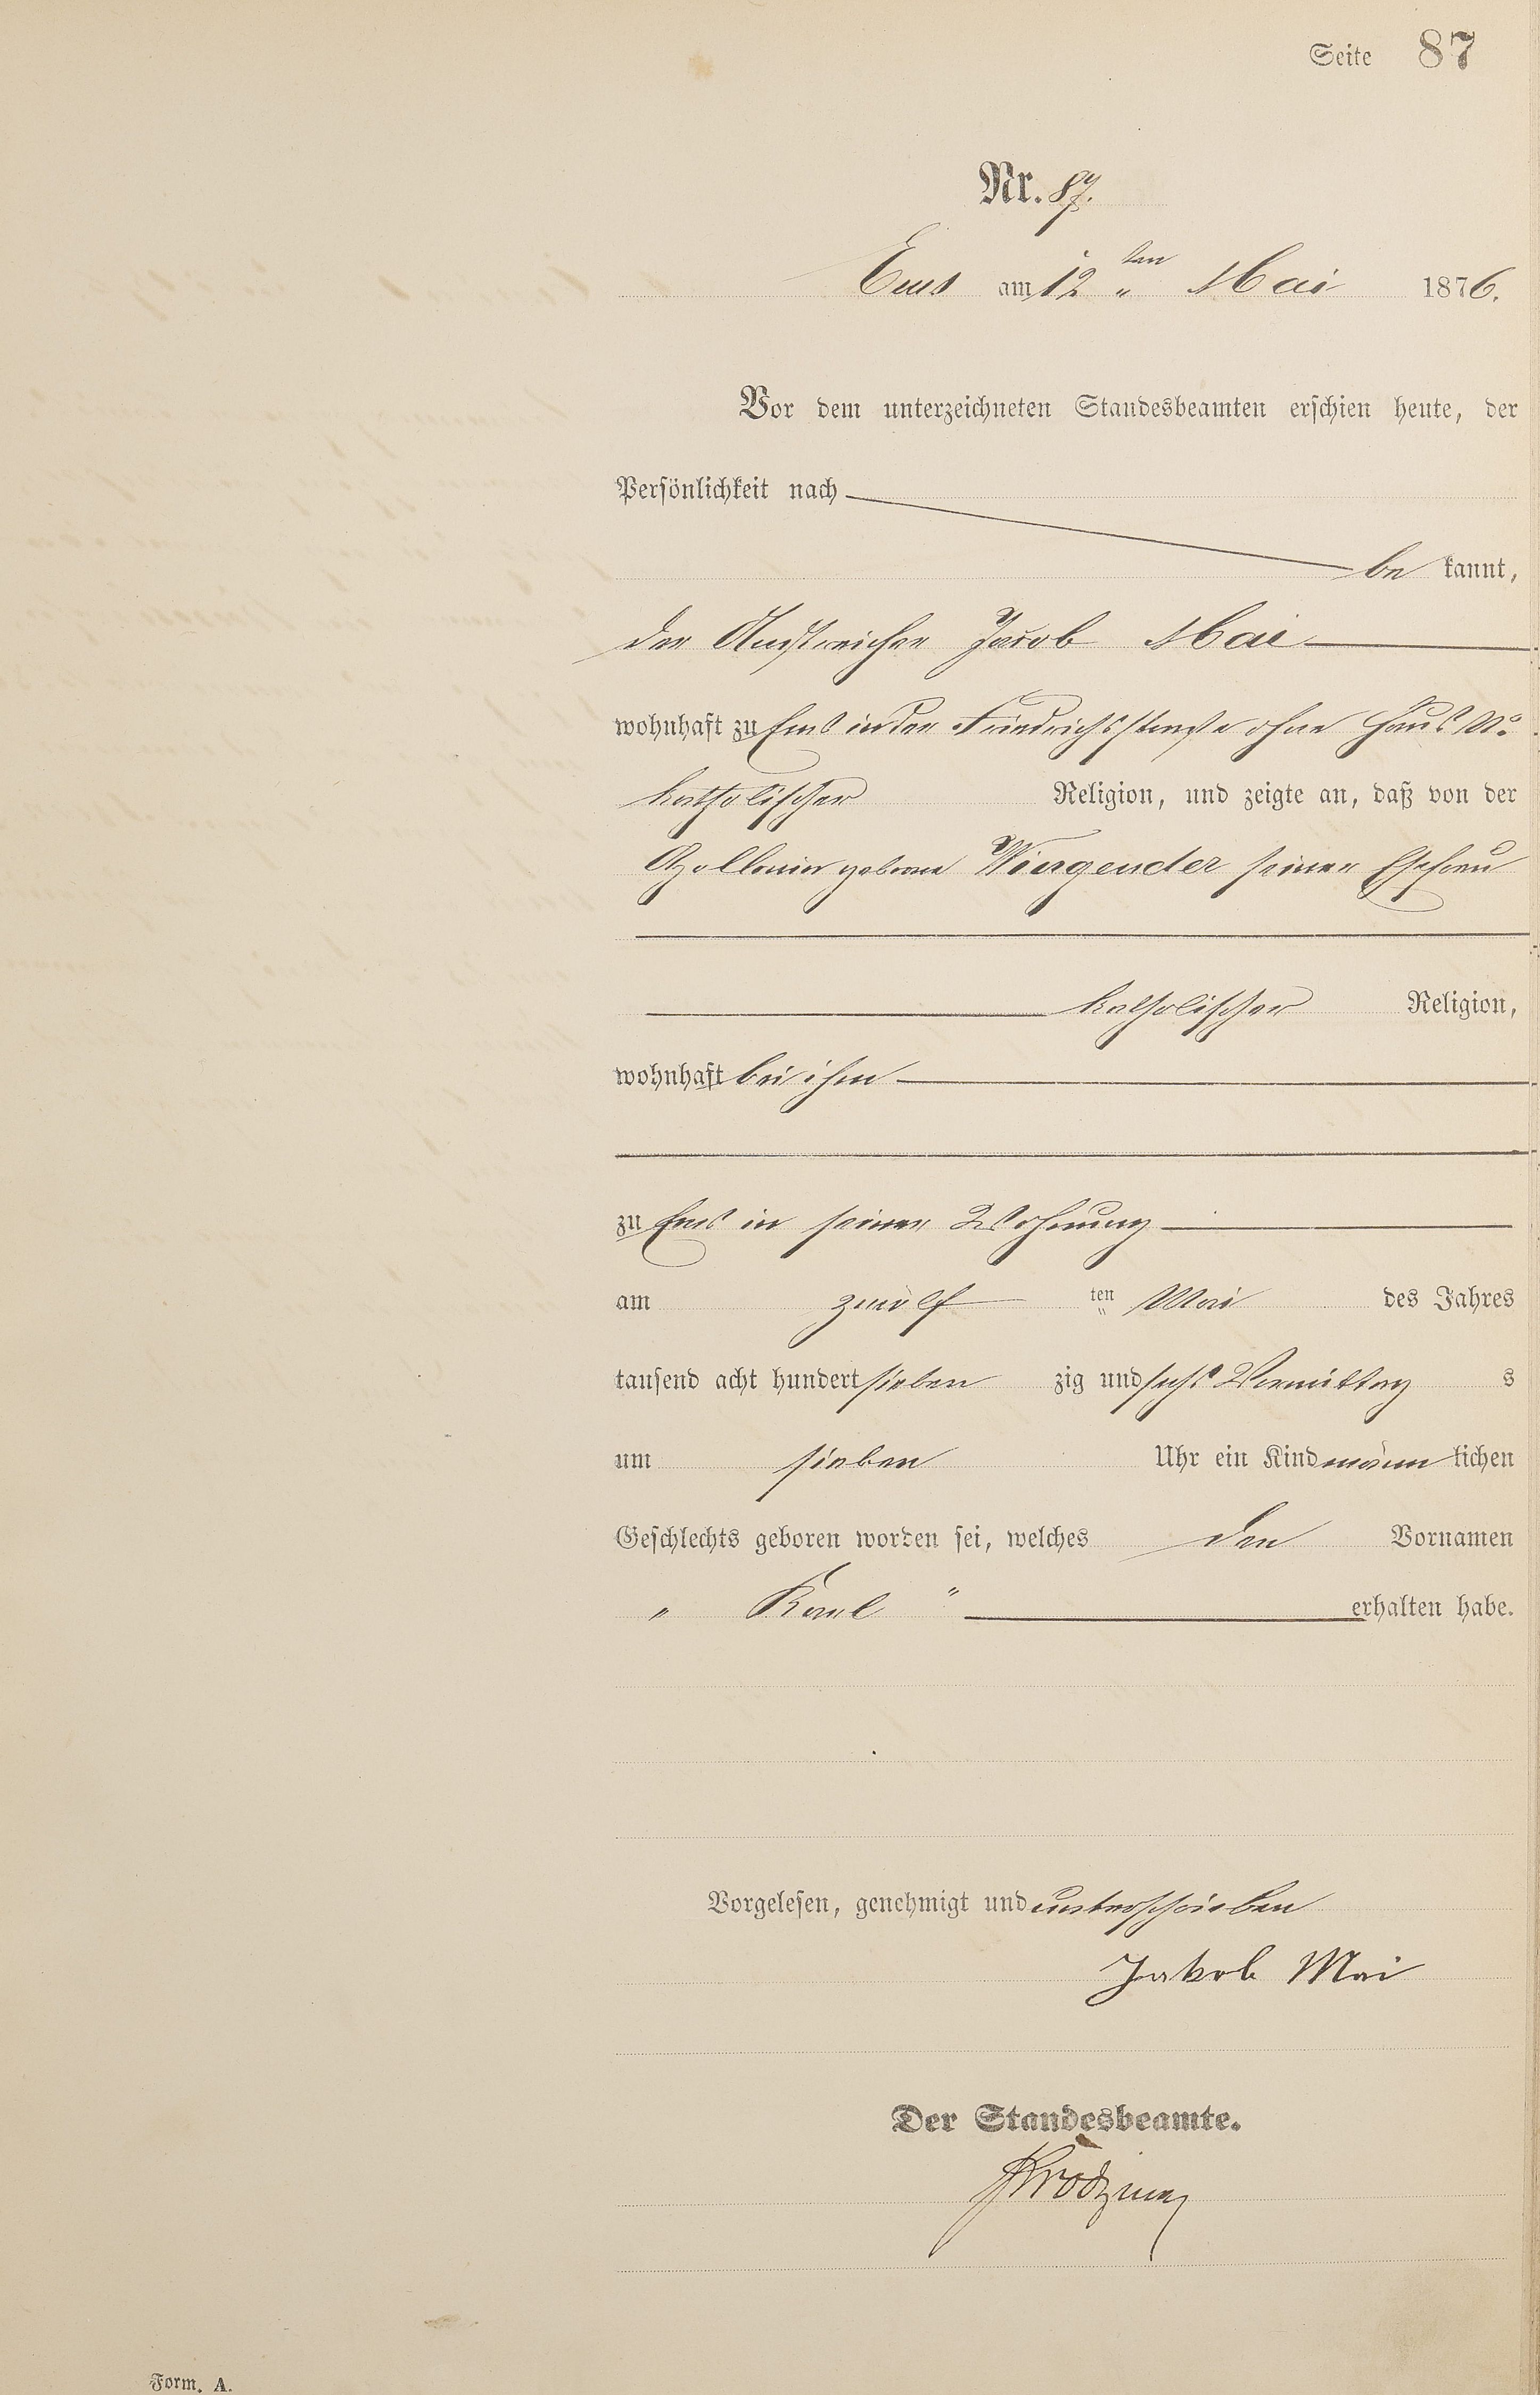 Seite 87
Nr. 87.
Ems am 12 ten " Mai 1876.
Vor dem unterzeichneten Standesbeamten erschien heute, der
Persönlichkeit nach
be kannt,
der Anstreicher Jacob Mai
wohnhaft zu Ems in der Friedrichsstraße ohne Haus No.
katholischer Religion, und zeigte an, daß von der
Apollonia geborne Wirgender seiner Ehefrau
katholischer Religion,
wohnhaft bei ihm
zu Ems in seiner Wohnung
am zwölf ten " Mai des Jahres
tausend acht hundert sieben zig und sechs Vormittag s
um sieben Uhr ein Kind männ lichen
Geschlechts geboren worden sei, welches den Vornamen
" Karl " erhalten habe.
Vorgelesen, genehmigt und unterschrieben
Jakob Mai
Der Standesbeamte.
Form. A.